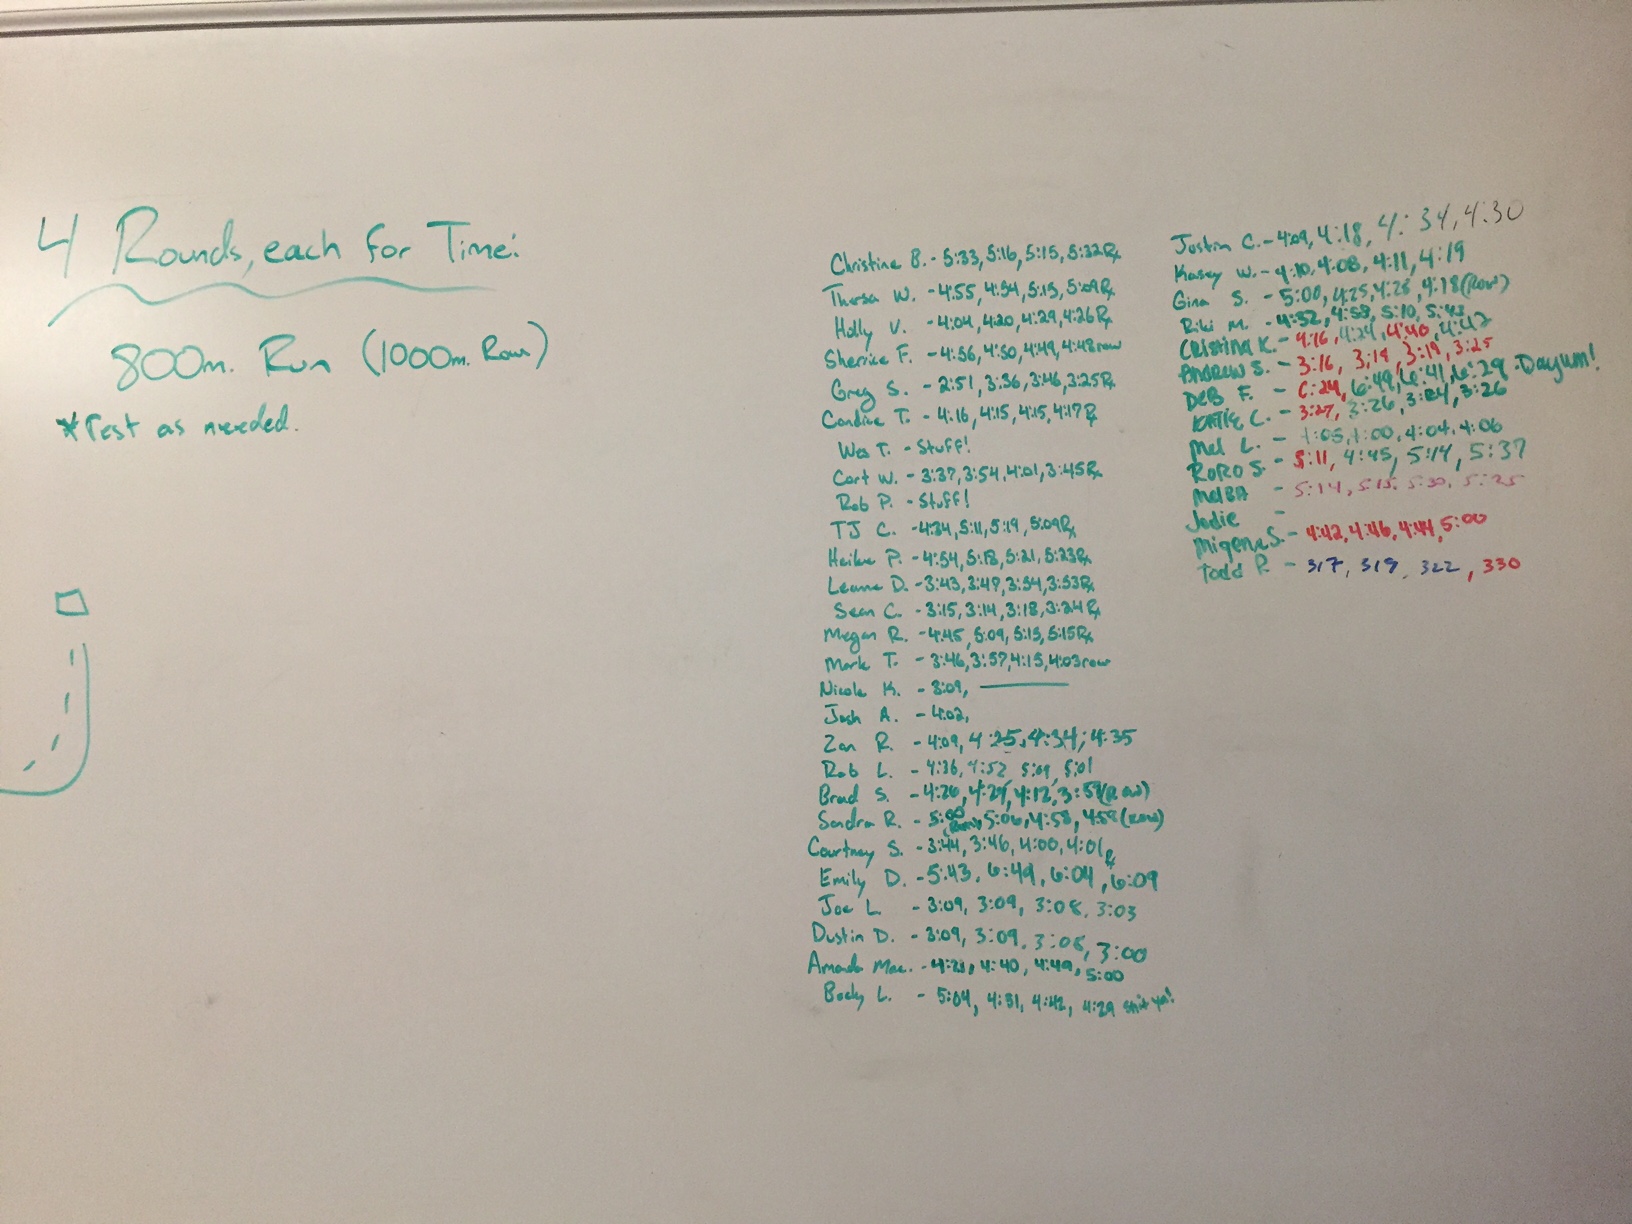 4 Rounds, each for Time:
800m. Run (1000m. Row)
*rest as needed.
Christine B. - 5:33, 5:16, 5:15, 5:32 Rx
Theresa W. - 4:55, 4:54, 5:13, 5:09 Rx
Holly V. - 4:04, 4:20, 4:29, 4:26 Rx
Sherrice F. - 4:56, 4:50, 4:49, 4:48 row
Greg S. - 2:51, 3:36, 3:46, 3:25 Rx
Candice T. - 4:16, 4:15, 4:15, 4:17 Rx
Wes T. - Stuff!
Cort W. - 3:37, 3:54, 4:01, 3:45 Rx
Rob P. - Stuff!
TJ C. - 4:34, 5:11, 5:19, 5:09 Rx
P. - 4:54, 5:18, 5:21, 5:23 Rx
Leanne D. - 3:43, 3:47, 3:54, 3:53 Rx
Sean C. - 3:15, 3:14, 3:18, 3:24 Rx
Megan R. - 4:45, 5:09, 5:13, 5:15 Rx
Mark T. - 3:46, 3:57, 4:15, 4:03 row
Nicole K. - 3:09,
Josh A. - 4:02,
Zan R. - 4:09, 4:25, 4:34, 4:35
Rob L. - 4:36, 4:52, 5:01
Brad S. - 4:26, 4:29, 4:12, 3:58 (Row)
Sandra R. - 5:00, 5:06, 4:58, 4:59 (Row)
Courtney S. - 3:44, 3:46, 4:00, 4:01 Rx
Emily D. - 5:43, 6:49, 6:04, 6:09
Joe L. - 3:09, 3:09, 3:08, 3:03
Dustin D. - 3:09, 3:09, 3:08, 3:00
Amanda Mac. - 4:21, 4:40, 4:49, 5:00
Becky L. - 5:04, 4:31, 4:42, 4:29 shit ya!
Justin C. - 4:09, 4:18, 4:34, 4:30
Kasey W. - 4:10, 4:08, 4:11, 4:19
Gina S. - 5:00, 4:25, 4:28, 4:18 (Row)
Riki M. - 4:32, 4:58, 5:10, 5:43
Cristina K. - 4:16, 4:24, 4:40, 4:42
Andrew S. - 3:16, 3:19, 3:19, 3:25
Deb F. - 6:24, 6:49, 6:41, 6:29 - Dayum!
Katie C. - 3:27, 3:26, 3:24, 3:26
Mel L. - 4:05, 4:00, 4:04, 4:06
RoRo S. - 5:11, 4:45, 5:14, 5:37
MelBA - 5:14, 5:15, 5:30, 5:25
Jodie -
Migena S. - 4:42, 4:46, 4:44, 5:00
Todd P. - 317, 319, 322, 330